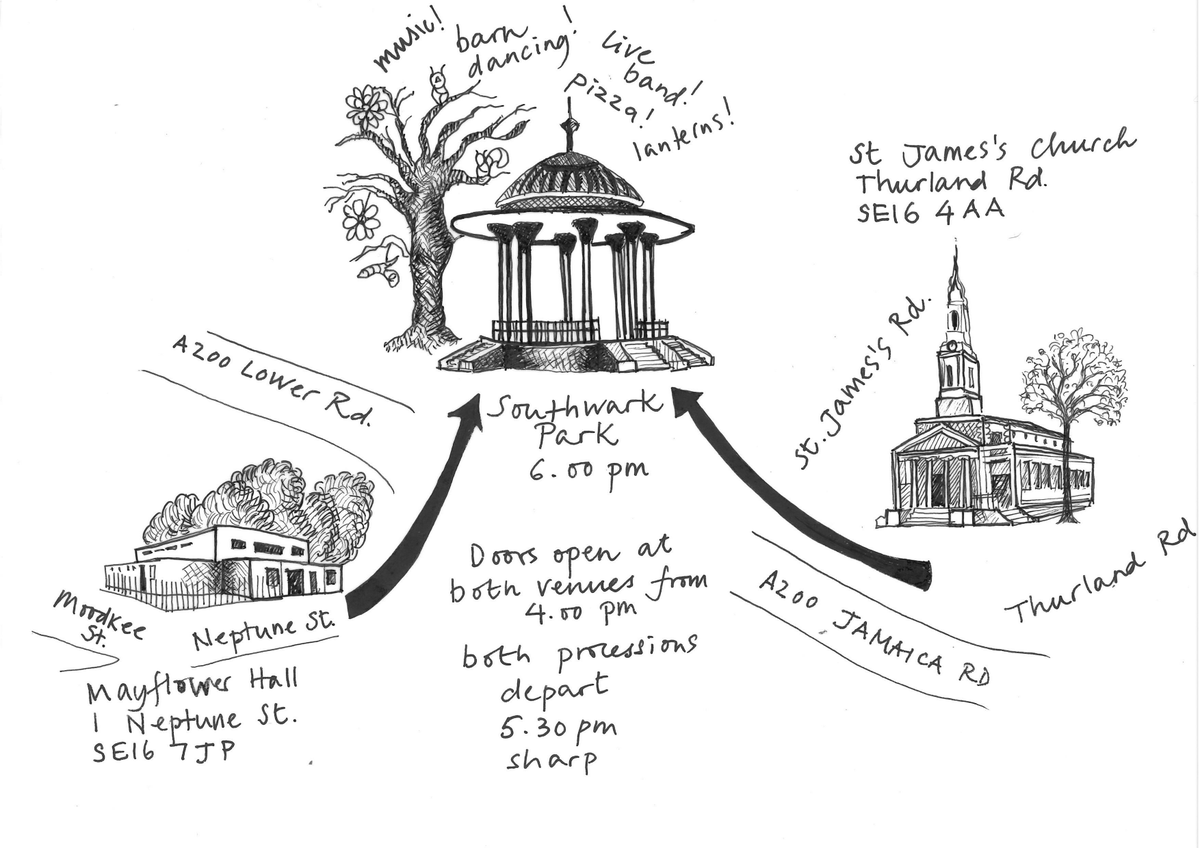 music!
barn
dancing!
live
band!
pizza!
lanterns!
St James's Church
Thurland Rd.
SE16 4AA
St. James's Rd.
A200 Lower Rd.
Southwark
Park
6.00 pm
Doors open at
both venues from
4.00 pm
both processions
depart
5.30 pm
sharp
Moodkee
St.
Neptune St.
Mayflower Hall
1 Neptune St.
SE16 7JP
A200 JAMAICA RD
Thurland Rd